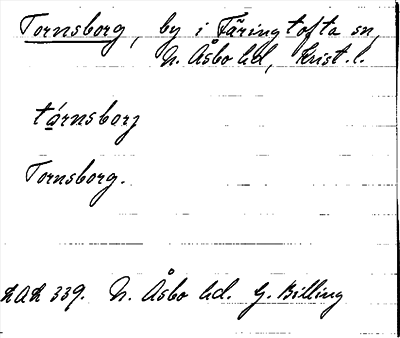 Tornsborg, by i Färingtofta sn,
N. Åsbo hd, Krist. l.
tárnsborj
Tornsborg.
LAL 339. N. Åsbo hd. G. Billing